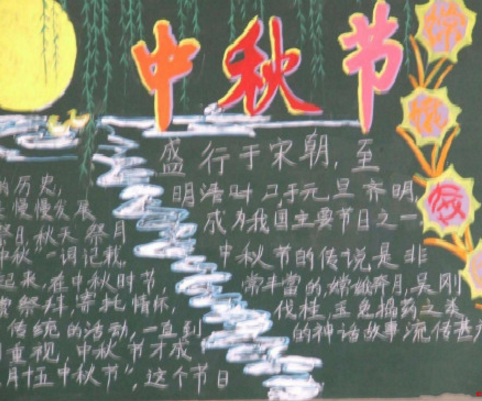 中秋节
的历史,
慢慢发展
祭日,秋天祭月
中秋"一词记载,
起来,在中秋时节,
祭拜,寄托情怀,
传统的活动,一直到
重视,中秋节才成
月十五中秋节",这个节日
盛行于宋朝,至
明清时 于元旦齐明
成为我国主要节日之一
中秋节的传说是非
常丰富的,嫦娥奔月,吴刚
伐桂,玉兔捣药之类
的神话故事流传甚